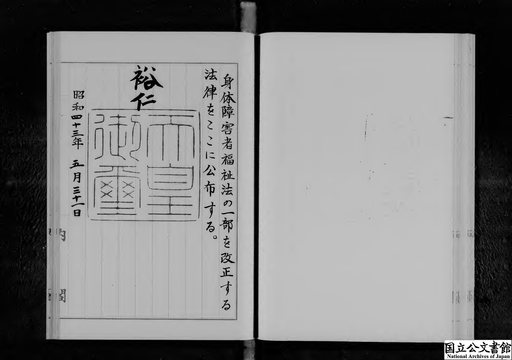 身体障害者福祉法の一部を改正する
法律をここに公布する。
裕仁
天皇
御璽
昭和四十三年 五月三十一日
内閣
国立公文書館
National Archives of Japan